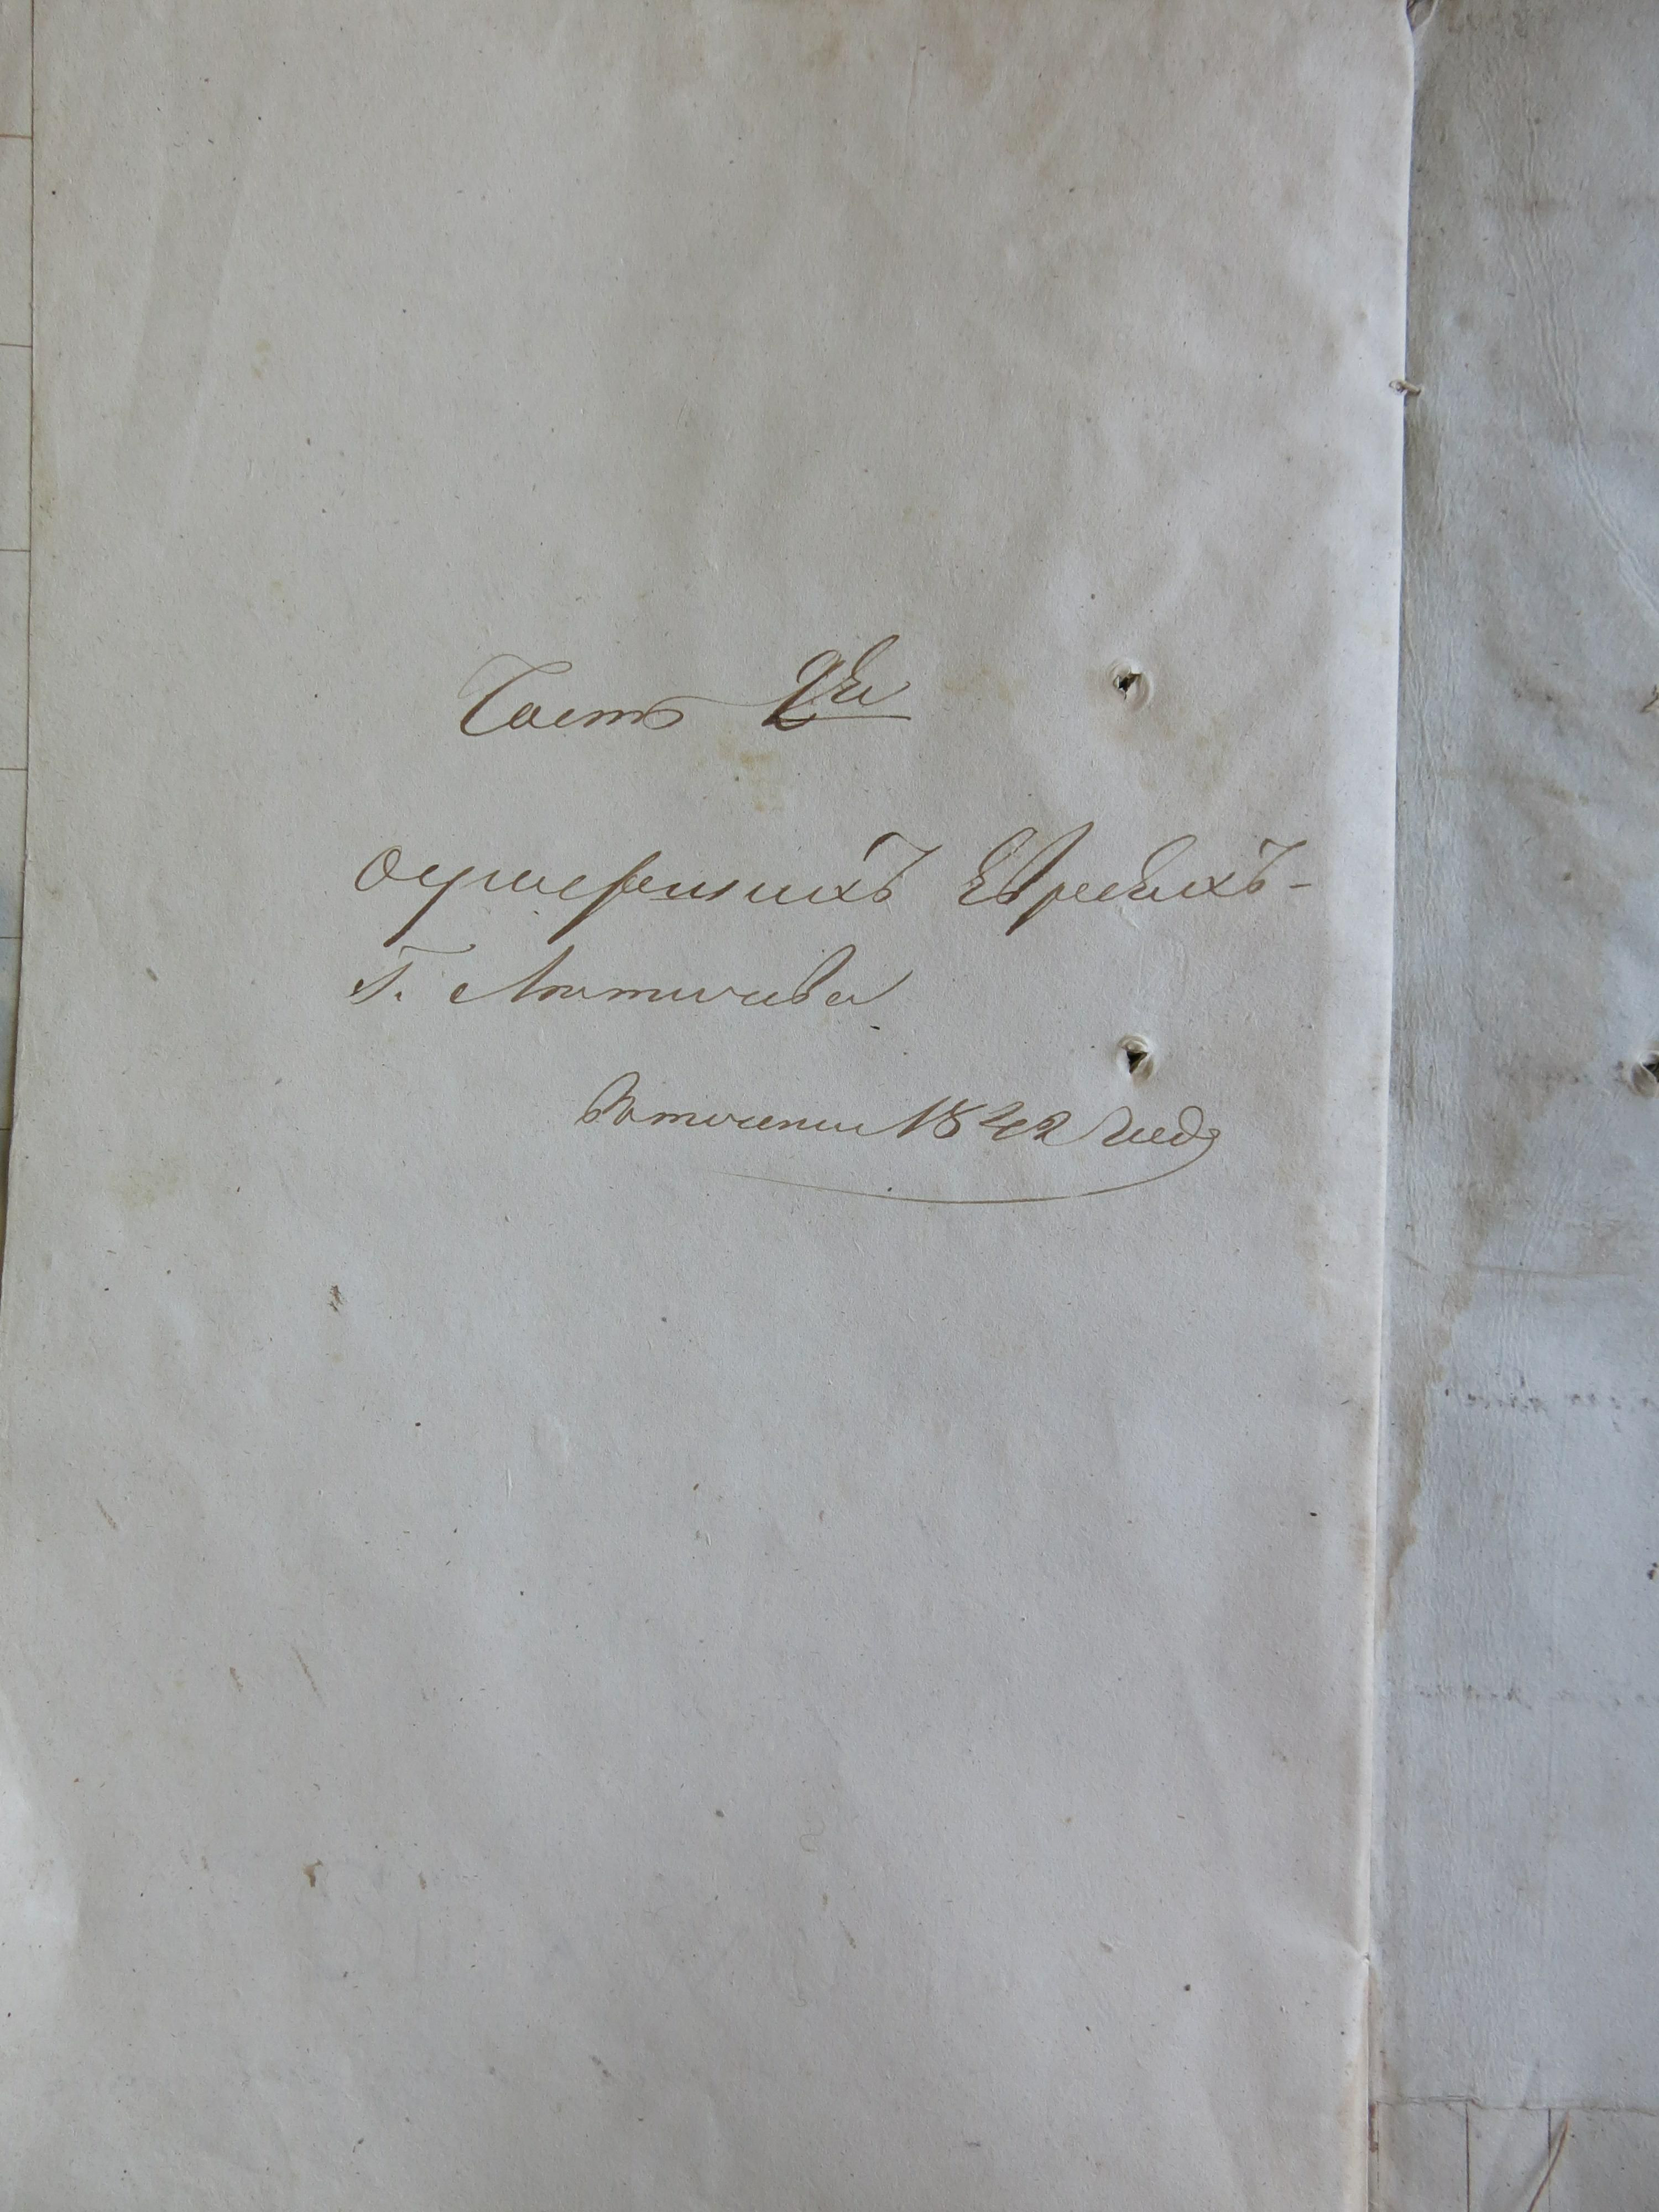 Часть 2я
О умершихъ Евреяхъ-
Г. Летичева
Втечении 1842 года